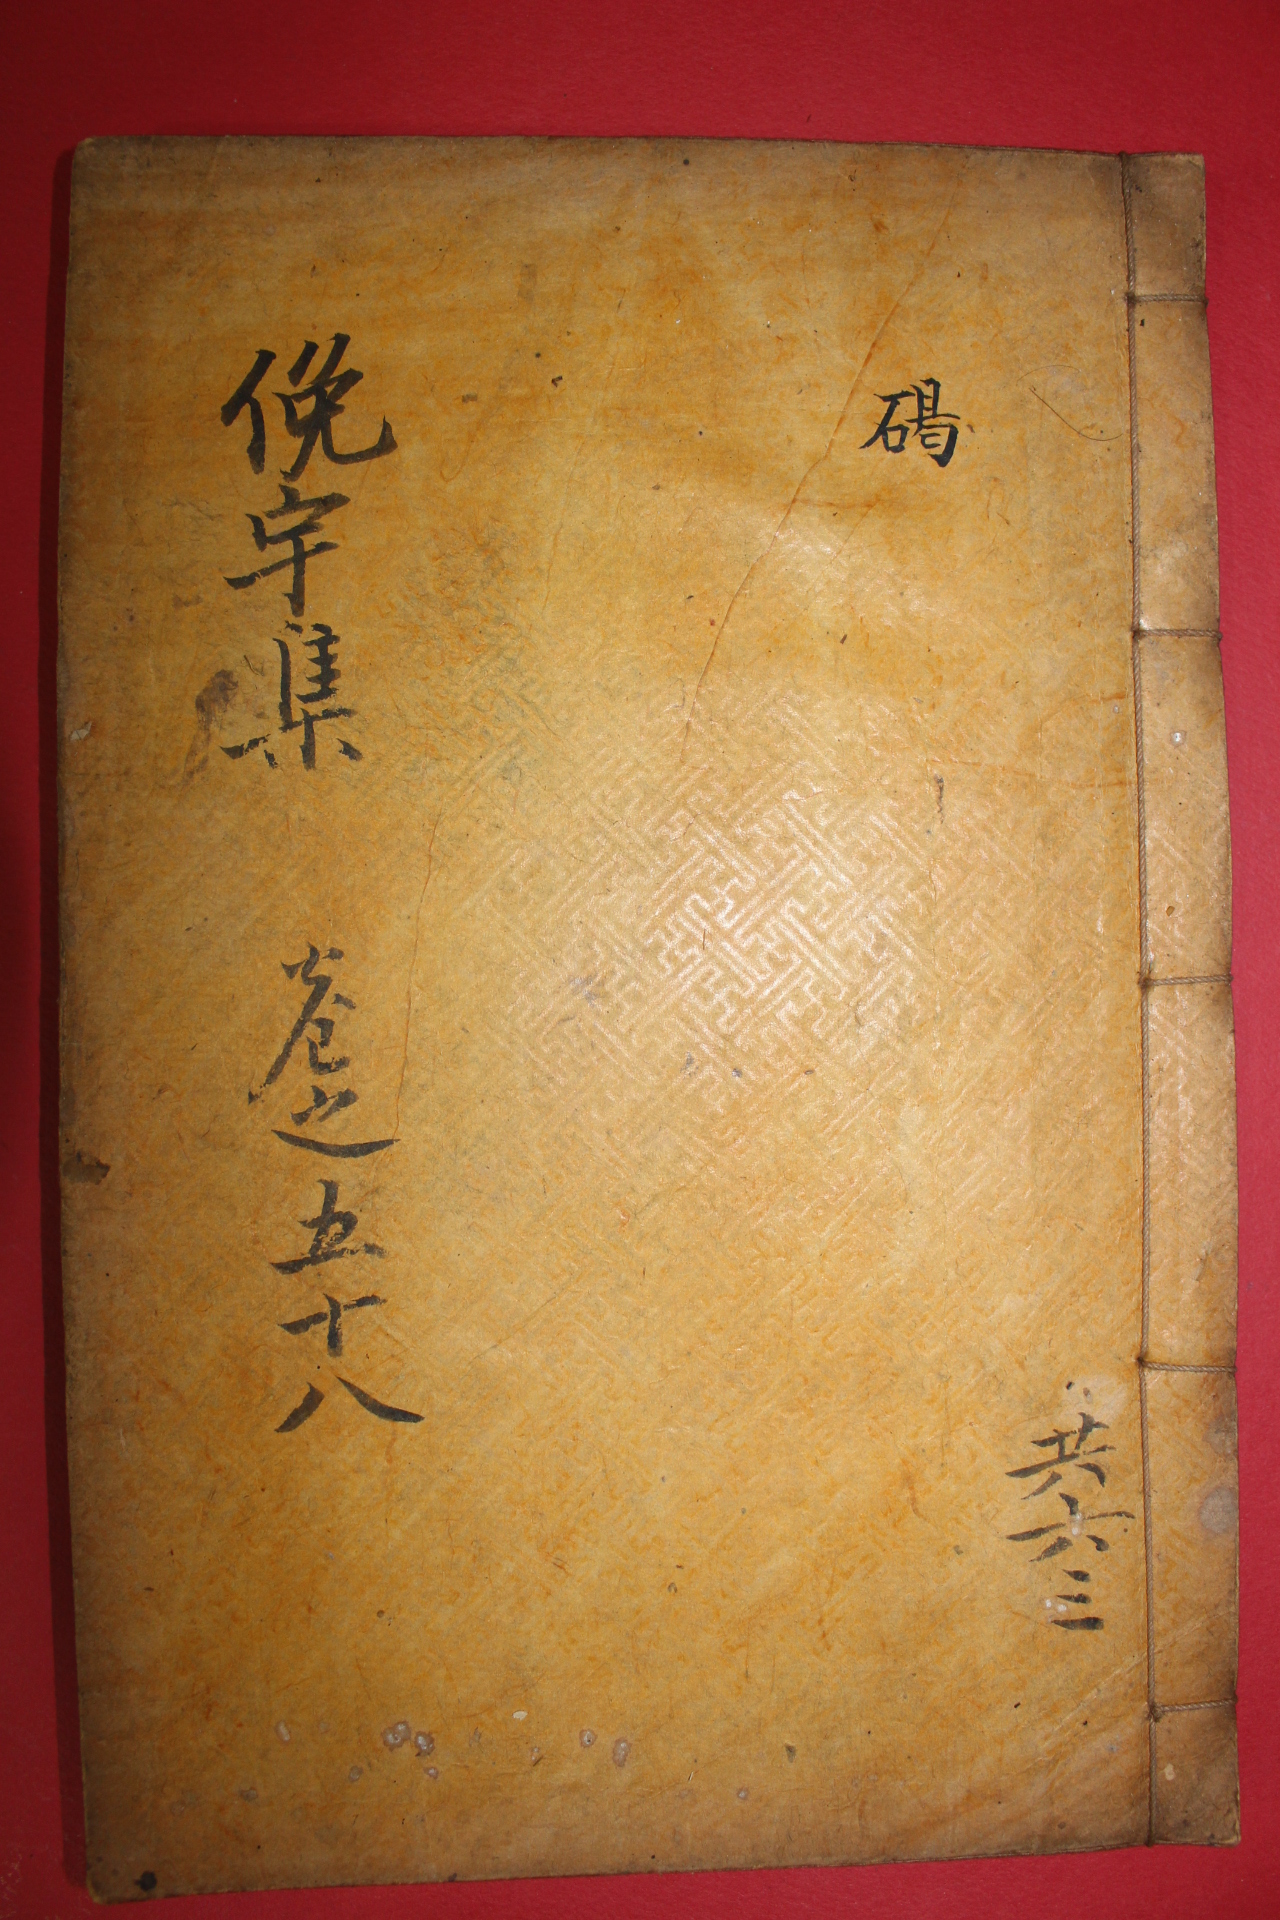 碣
共六三
俛宇集 卷之五十八